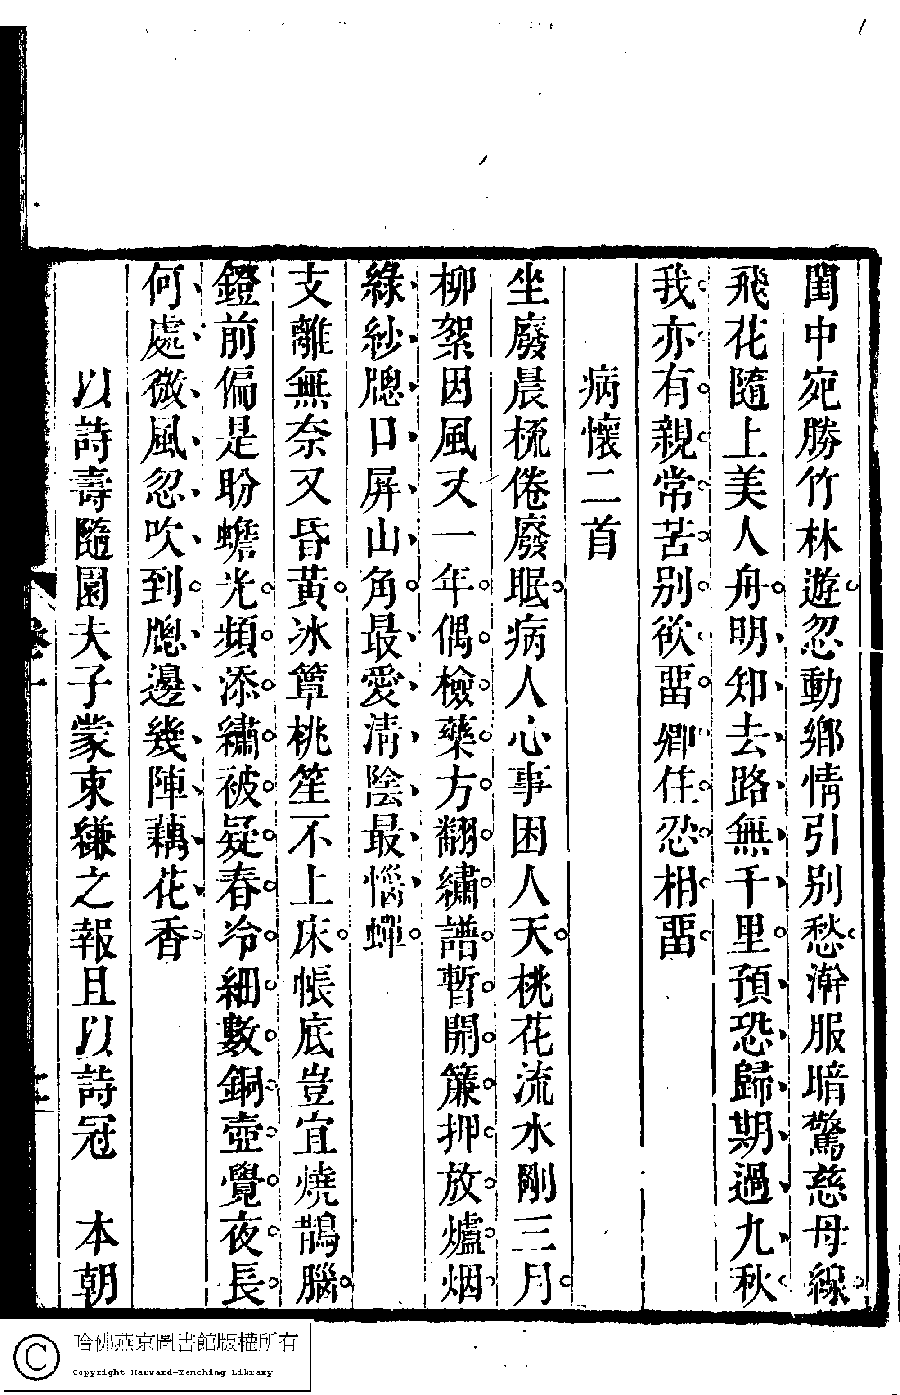 閨中宛勝竹林遊忽動鄉情引别愁澣服暗驚慈母線
飛花隨上美人舟明知去路無千里預恐歸期過九秋
我亦有親常苦别欲畱卿住忍相畱
病懷二首
坐廢晨梳倦廢眠病人心事困人天桃花流水剛三月
柳絮因風又一年偶檢藥方翻繡譜暫開簾押放爐烟
綠紗牕口屏山角最愛清陰最惱蟬
支離無奈又昏黃冰簟桃笙不上床帳底豈宜燒鵲腦
鐙前偏是盼蟾光頻添繡被疑春冷細數銅壺覺夜長
何處微風忽吹到牕邊幾陣藕花香
以詩壽隨園夫子蒙束縑之報且以詩冠　本朝
哈佛燕京圖書館版權所有
Copyright Harvard-Yenching Library